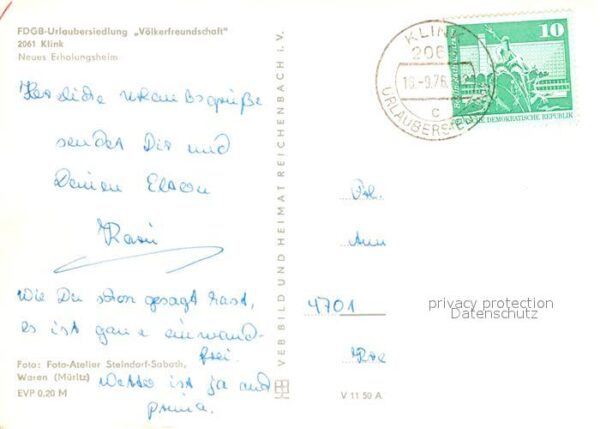 FDGB-Urlaubersiedlung „Völkerfreundschaft"
2061 Klink
Neues Erholungsheim
Herzliche Urlaubsgrüße
sendet Dir und
Deinen Eltern
Karin
Wie Du schon gesagt hast,
es ist ganz einwand-
frei.
Wetter ist ja auch
prima.
Foto: Foto-Atelier Steindorf-Sabath,
Waren (Müritz)
EVP 0,20 M
VEB BILD UND HEIMAT REICHENBACH i. V.
KLINK
206
16.-9.76
c
URLAUBERSIEDLUNG
10
DEMOKRATISCHE REPUBLIK
Frl.
4701
privacy protection
Datenschutz
V 11 50 A